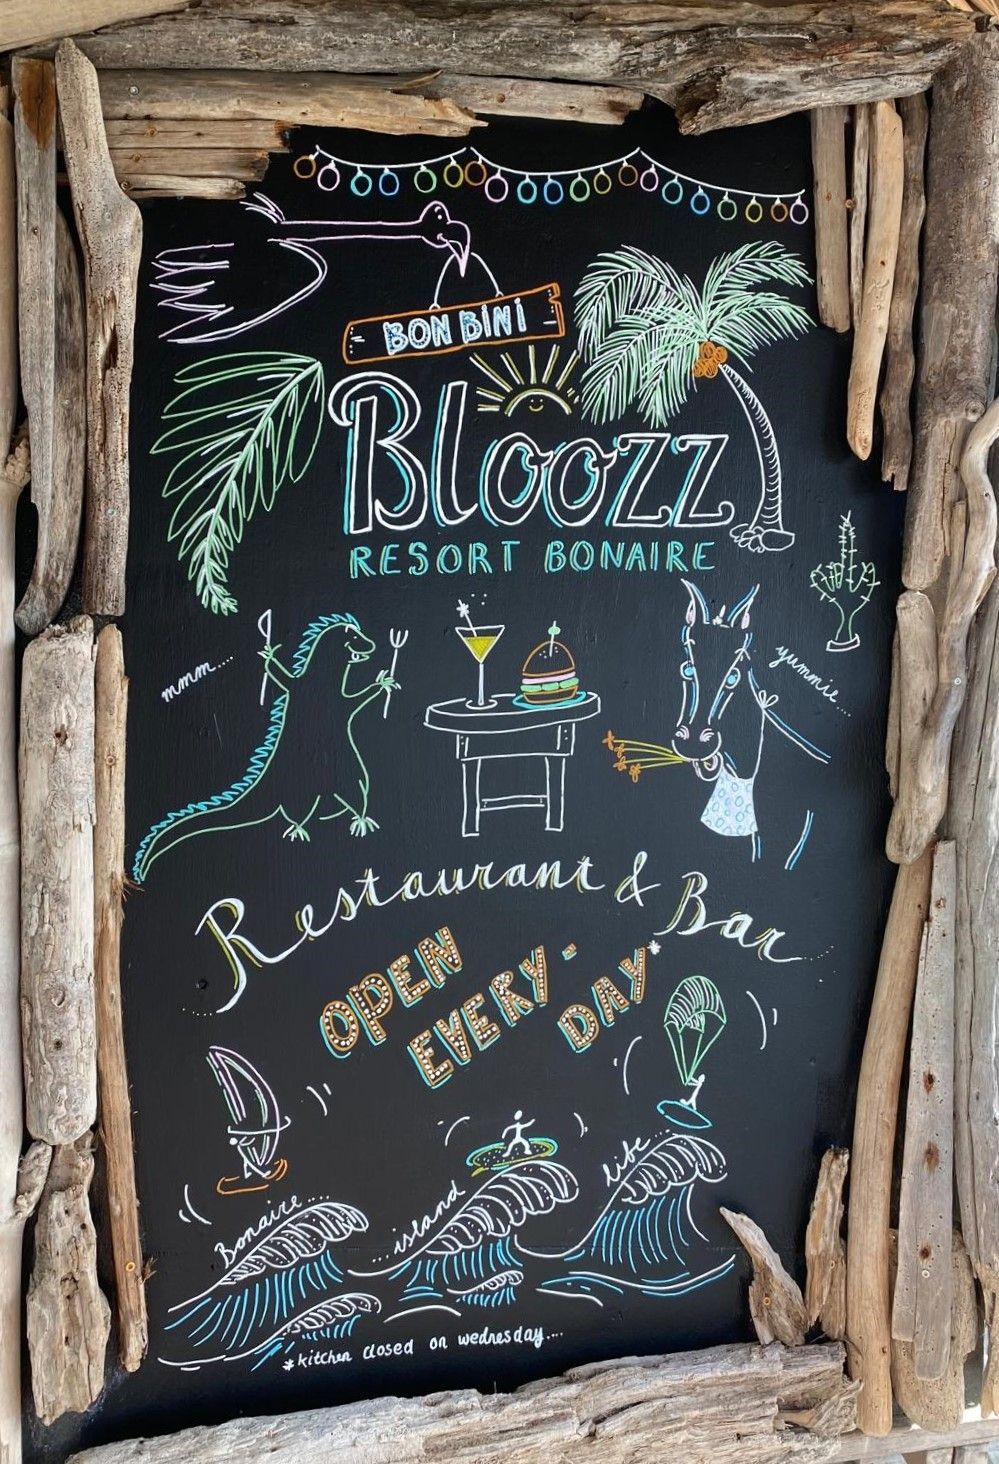 BON BINI
Bloozz
RESORT BONAIRE
mmm....
yummie...
Restaurant & Bar
OPEN
EVERY-
DAY*
Bonaire....
....island
life....
*kitchen closed on wednesday....